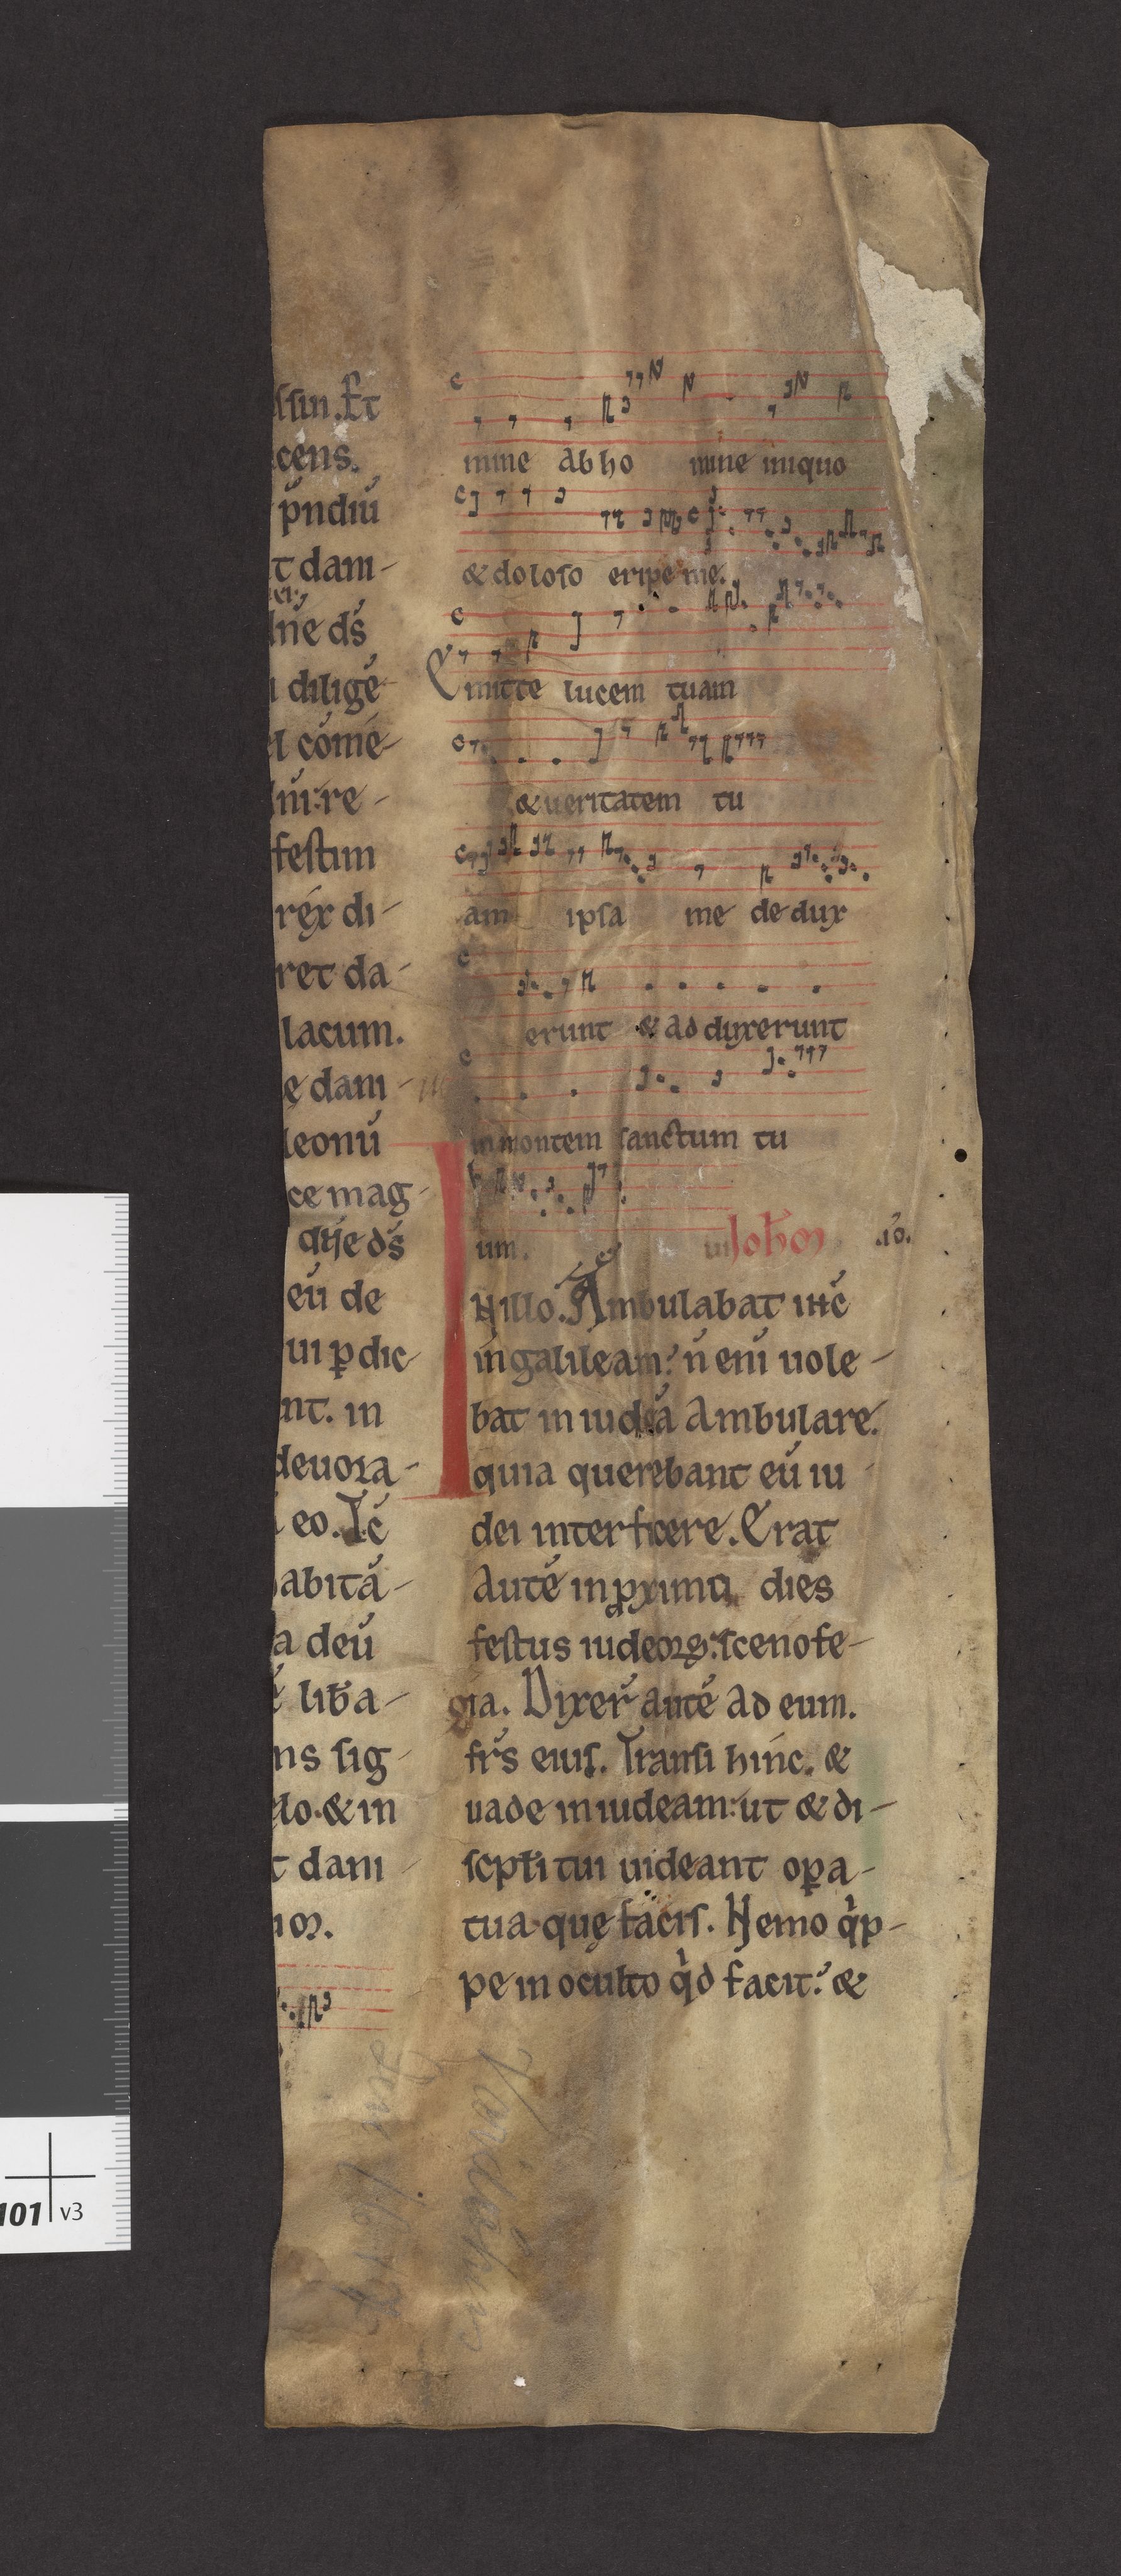 ssin. Et
cens.
p̄ndiū
t dam-
ei;
dn̄e ds̄
diligē-
el comē-
re-
festim
réx di-
ret da-
lacum.
ę dani-
leonū
ce mag-
dīīe ds̄
eū de
ui p̱dic-
nt. in
deuora-
eo. Ic̄
abitā-
a deū
ē lib̄a-
ns sig-
elo. & in
t dani
mine ab ho mine iniquo
& doloso eripe me.
Emitte lucem tuam
& ueritatem tu
am ipsa me de dux
erunt & ad duxerunt
in montem sanctum tu
um. ioh̄em .io.
IN illo. Ambulabat ih̄c
in galileam: n̄ enī uole-
bat in iudeā ambulare.
quia querebant eū iu
dei interficere. Erat
autē in p̱ximū dies
festus iudeoꝝ: scenofe-
gia. Dixer̄ autē ad eum.
fr̄s eius. Transi hinc. &
uade in iudeam: ut & di-
scpl̄i tui uideant op̱a-
tua que facis. Nemo qͥp-
pe in oculto qͥd facit: &